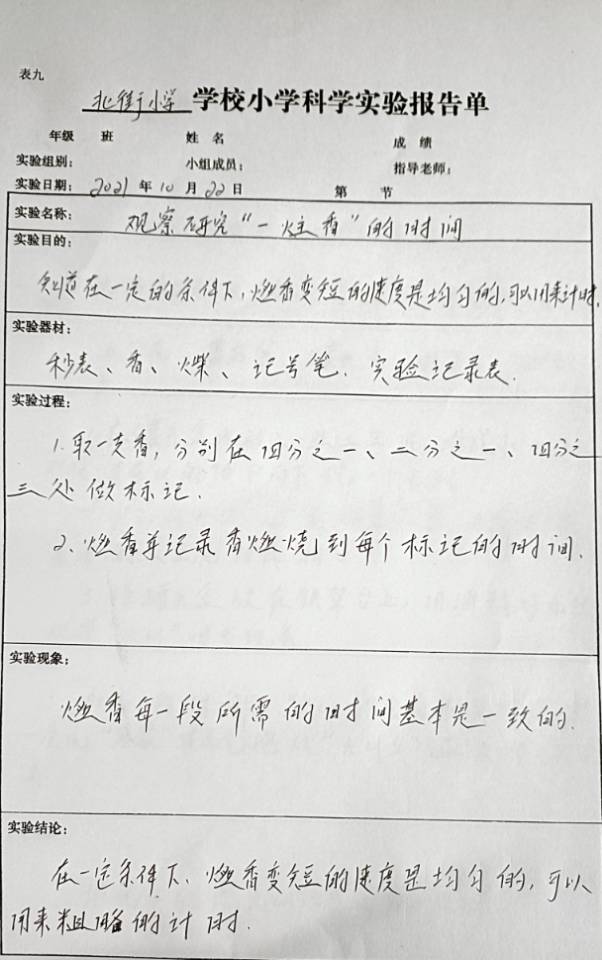 表九
北街小学 学校小学科学实验报告单
年级 班 姓名 成绩
实验组别： 小组成员： 指导老师：
实验日期： 2021 年 10 月 22 日 第 节
实验名称： 观察研究“一炷香”的时间
实验目的：
知道在一定的条件下，燃香变短的速度是均匀的，可以用来计时。
实验器材：
秒表、香、火柴、记号笔、实验记录表.
实验过程：
1.取一支香，分别在四分之一、二分之一、四分之
三处做标记.
2、燃香并记录香燃烧到每个标记的时间.
实验现象：
燃香每一段所需的时间基本是一致的.
实验结论：
在一定条件下、燃香变短的速度是均匀的，可以
用来粗略的计时.